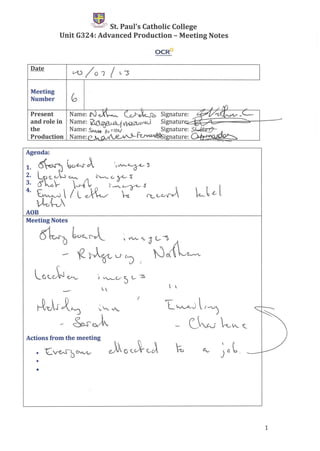 St. Paul's Catholic College
Unit G324: Advanced Production – Meeting Notes
OCR
Date
/ 07 / 13
Meeting Number
6
Present and role in the Production
Name: Signature:
Name: Signature:
Name: Sarah Signature:
Name: Charlene Signature:
Agenda:
1. Story board images
2. Location images
3. Shot images
4. Email / Letter to record label
Hotel
AOB
Meeting Notes
Story board images
- Ridgway, Nathan
Location images
- " "
Holiday inn Emailing
- Sarah - Charlene
Actions from the meeting
• Everyone allocated to a job.
•
•
1